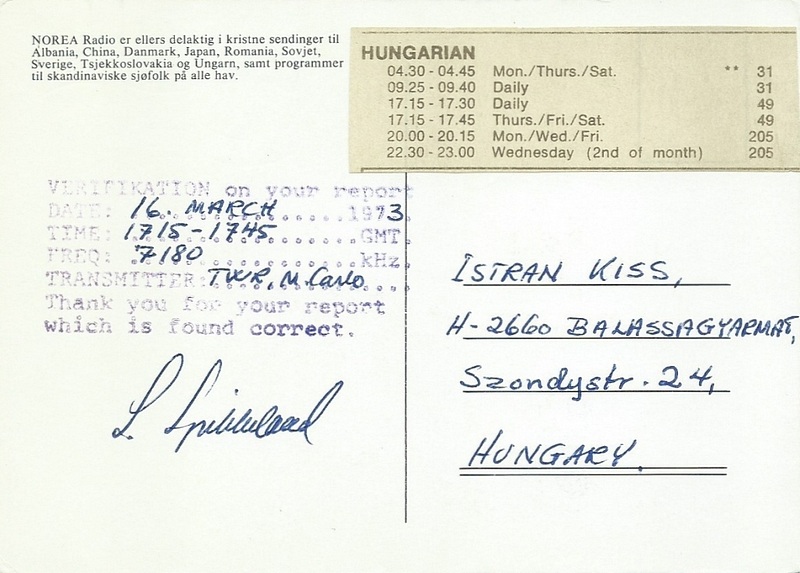 NOREA Radio er ellers delaktig i kristne sendinger til
Albania, China, Danmark, Japan, Romania, Sovjet,
Sverige, Tsjekkoslovakia og Ungarn, samt programmer
til skandinaviske sjøfolk på alle hav.
HUNGARIAN
04.30 - 04.45 Mon./Thurs./Sat. ** 31
09.25 - 09.40 Daily 31
17.15 - 17.30 Daily 49
17.15 - 17.45 Thurs./Fri./Sat. 49
20.00 - 20.15 Mon./Wed./Fri. 205
22.30 - 23.00 Wednesday (2nd of month) 205
VERIFIKATION on your report
DATE: 16. MARCH 1973
TIME: 1715-1745 GMT.
FREQ: 7180 kHz.
TRANSMITTER: TWR, M. Carlo
Thank you for your report
which is found correct.
ISTRAN KISS,
H-2660 BALASSAGYARMAT,
Szondystr. 24,
HUNGARY.